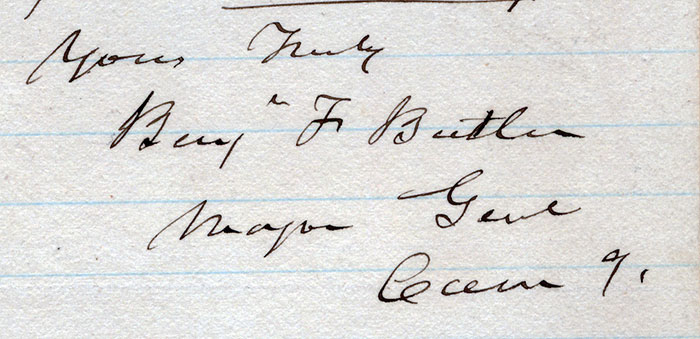 Yours Truly
Benjn F Butler
Major Genl
Com g.